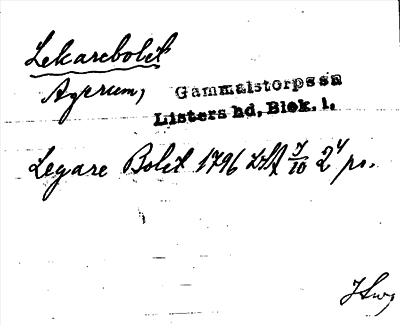 Lekarebolet
Agerum, Gammalstorps sn
Listers hd, Blek. l.
Legare Bolet 1796 LSA 7/10 24 pr.